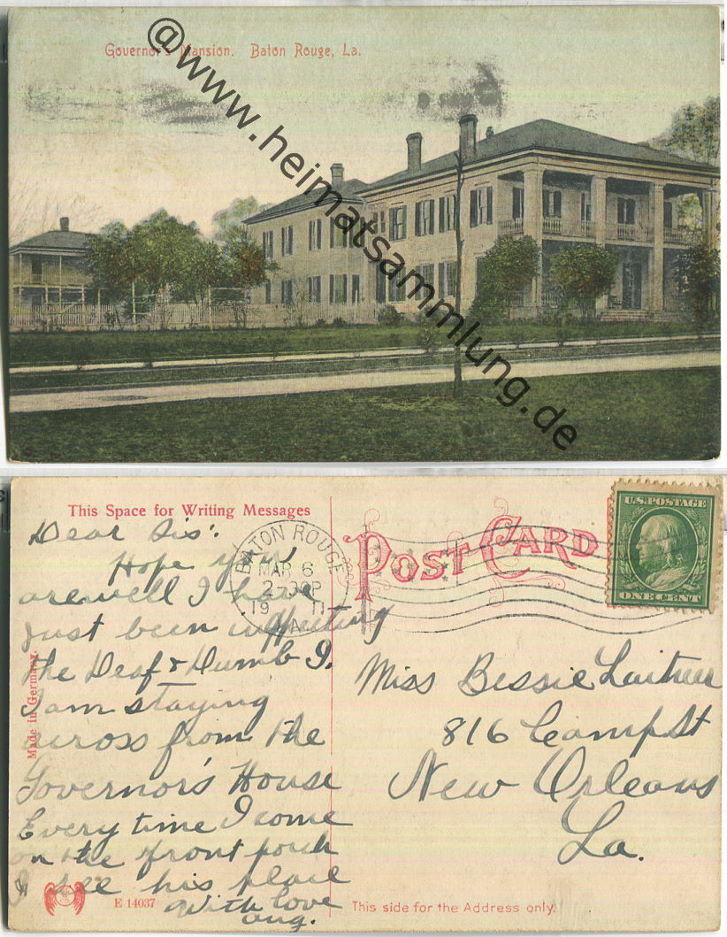 Governor's Mansion. Baton Rouge, La.
@www.heimatsammlung.de
This Space for Writing Messages
Dear Sis:
Hope you
are well I have
just been inspecting
the Deaf & Dumb I.
I am staying
across from the
Governor's House
Every time I come
on the front porch
I see his place
With love
Aug.
Made in Germany.
E 14037
BATON ROUGE
MAR 6
2 30 P
19 11
LA.
POST CARD
U.S. POSTAGE
ONE CENT
Miss Bessie
816 Camp St
New Orleans
La.
This side for the Address only.